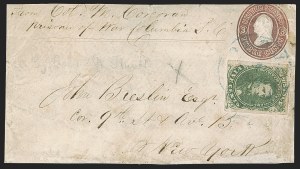 From Col. M. Corcoran
Prisoner of War Columbia S. C.
John Breslin Esq.
Cor. 9th St & Av.
New York